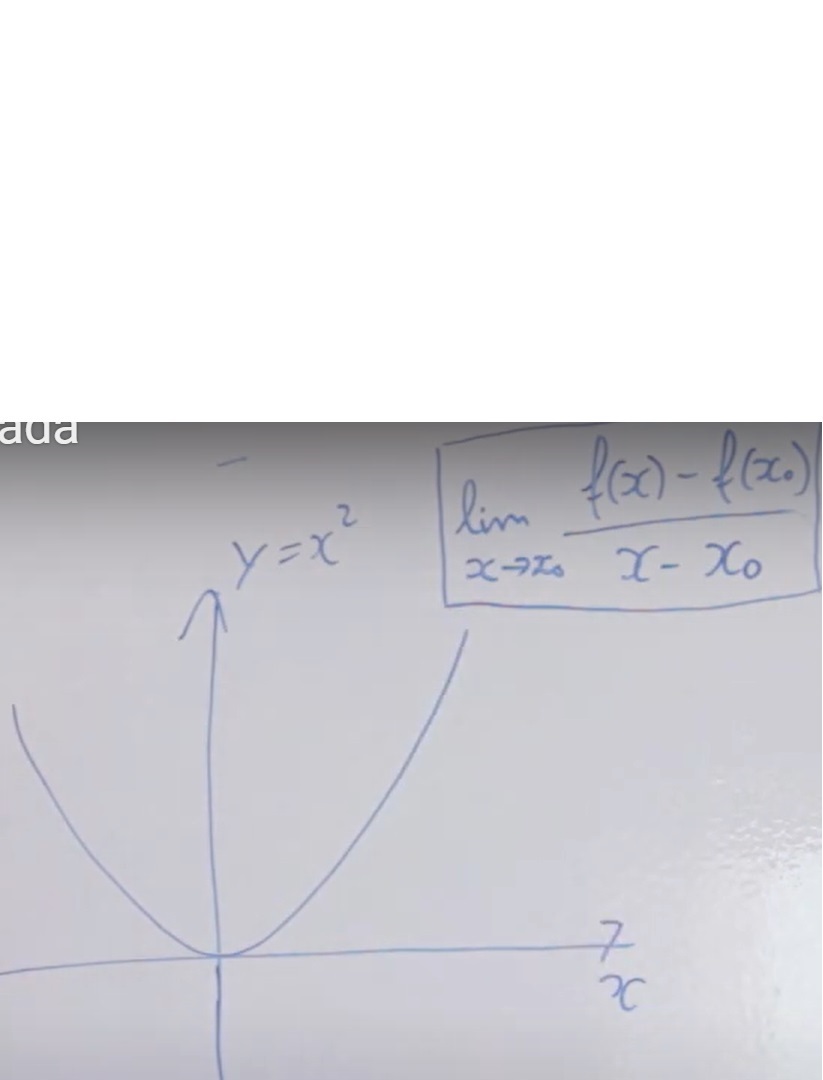 ada
y = x²
lim x→x₀ f(x) - f(x₀) / x - x₀
x